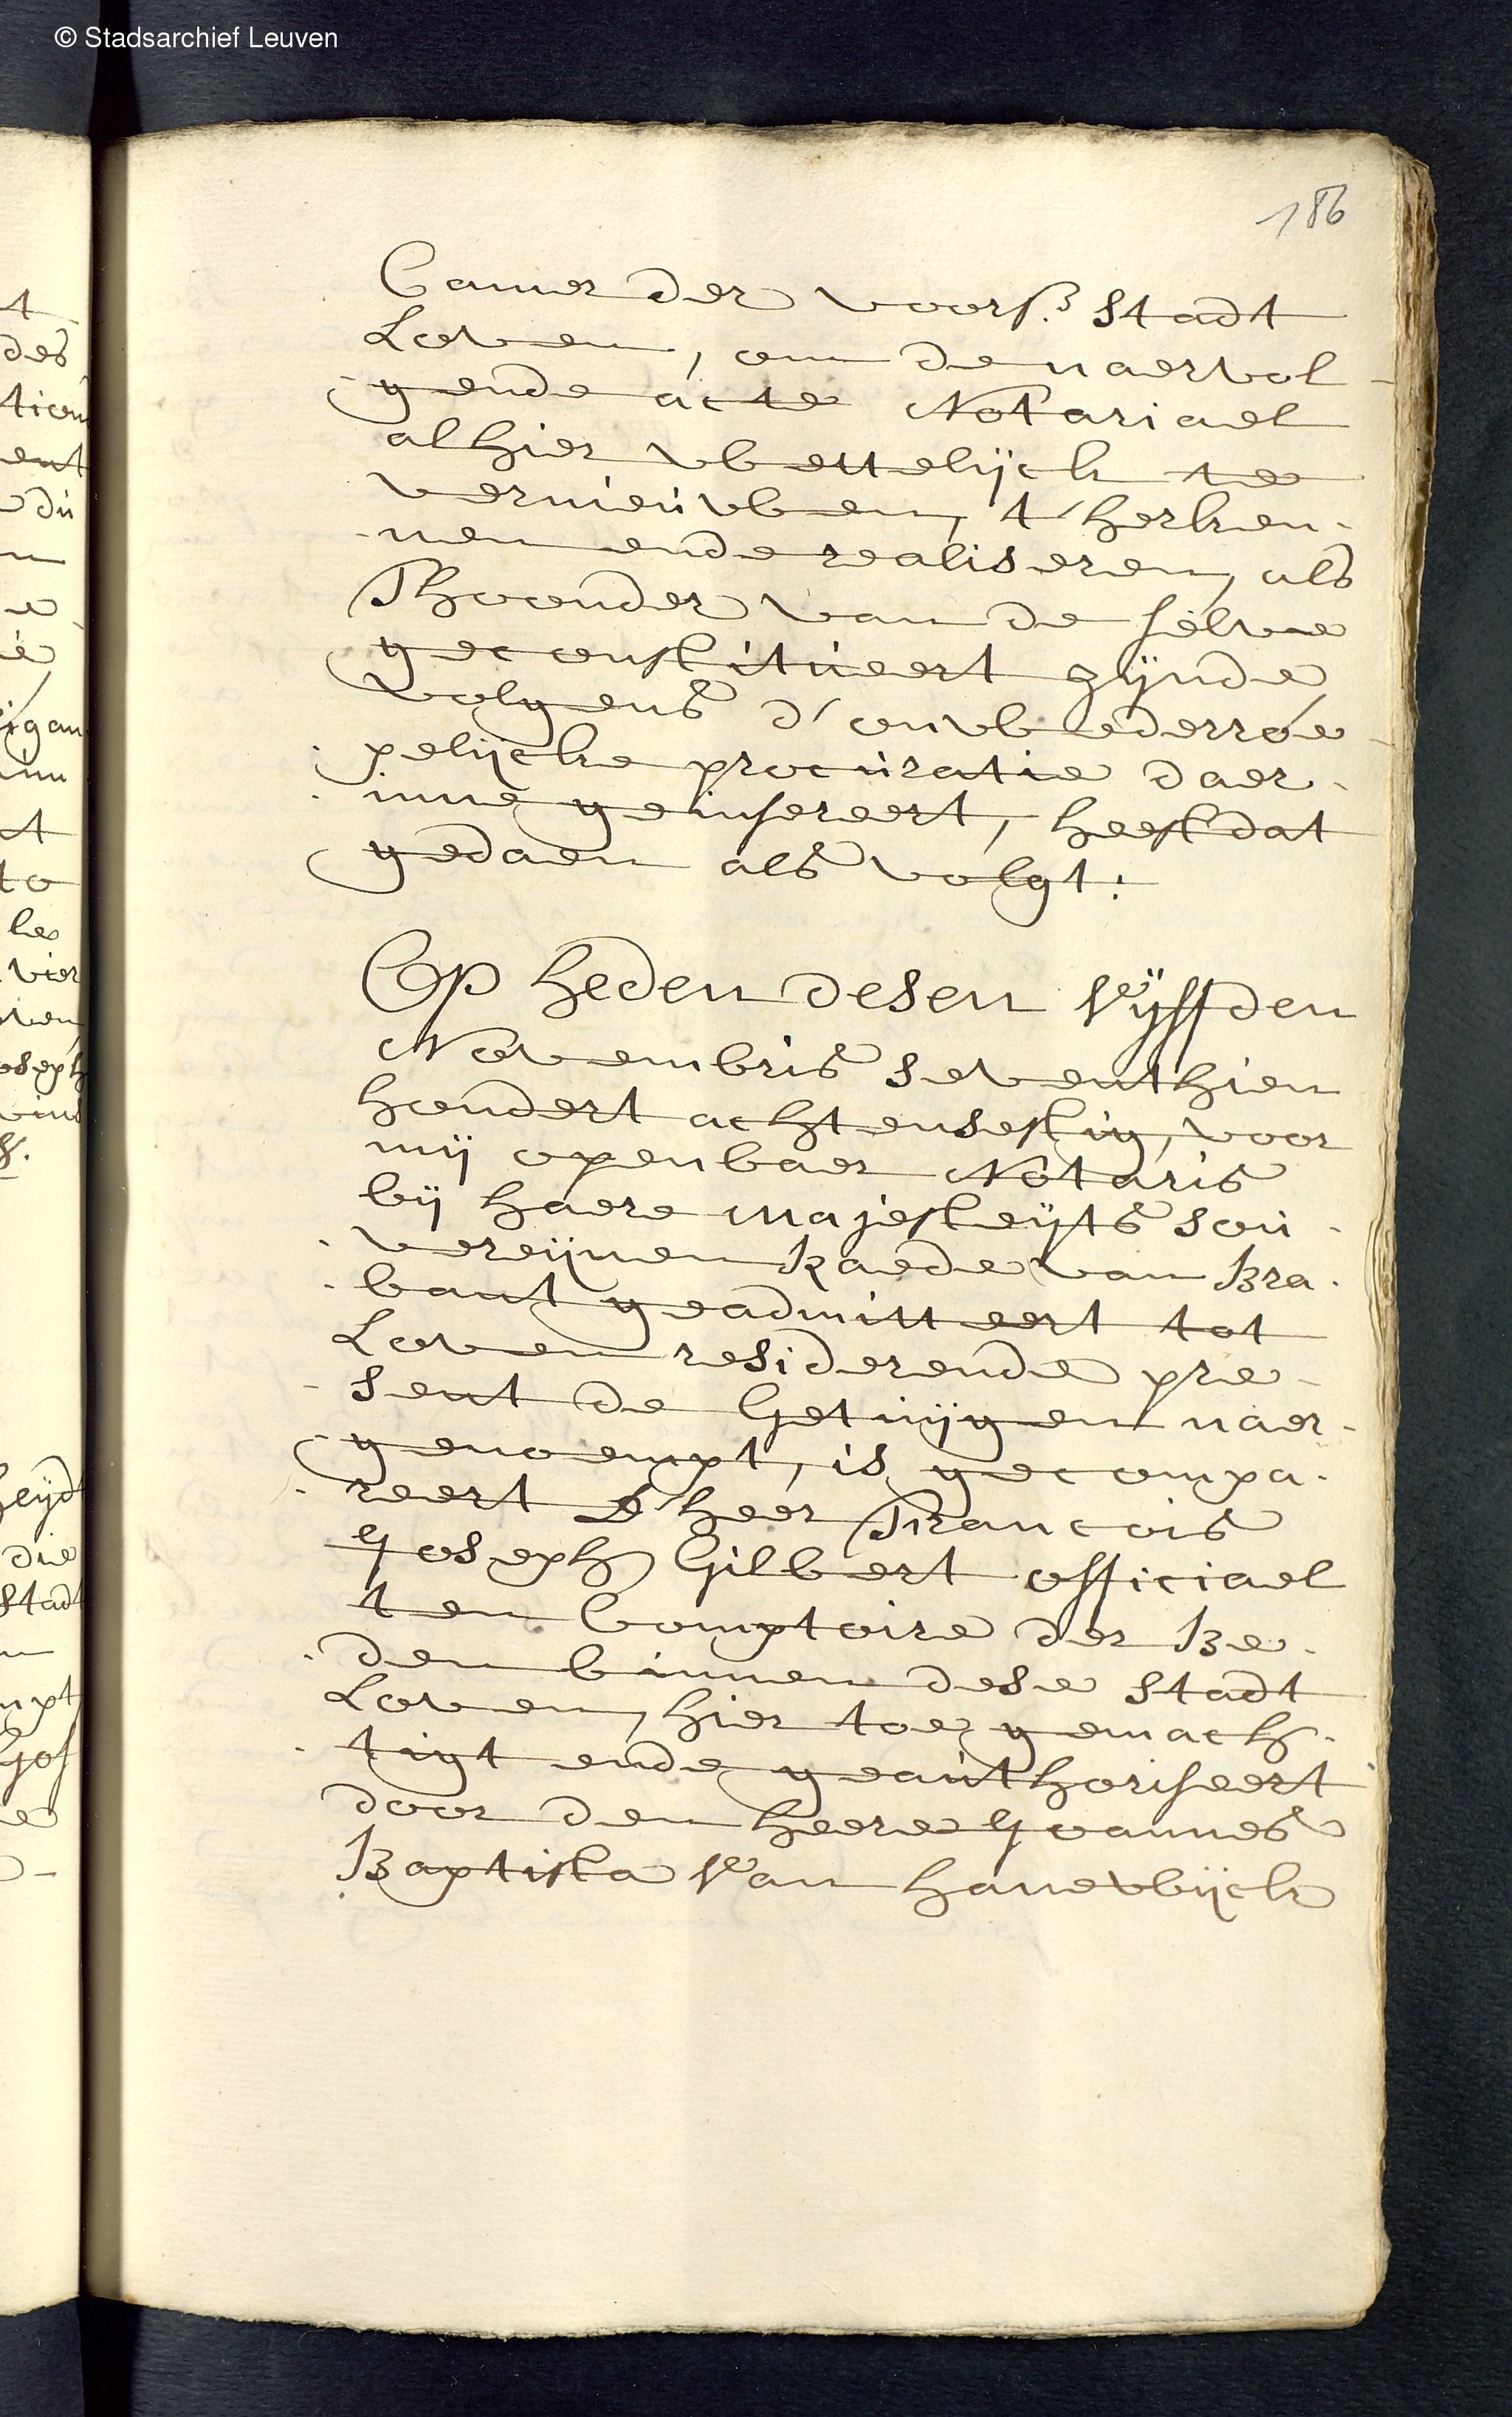 © Stadsarchief Leuven
186
Camer der voors. stadt
Loven, om de naervol-
gende acte Notariael
alhier wettelijck te
vernieuwen, t'herken-
nen ende realiseren, als
Thoonder van de selve
geconstitueert zijnde
volgens d'onwederroe-
pelijcke procuratie daer-
inne geinsereert, heeft dat
gedaen als volgt:
Op heden desen Vijffden
Novembris seventhien
hondert achtensestig, voor
mij openbaer Notaris
bij haere Majesteyts sou-
vereijnen Raede van Bra-
bant geadmitteert tot
Loven residerende pre-
sent de Getuijgen naer-
genoempt, is gecompa-
reert d'heer Francois
Joseph Gilbert officiael
ten Comptoire der Be-
den binnen dese stadt
Loven, hier toe gemach-
tigt ende geauthoriseert
door den heere Joannes
Baptista Van hanewijck